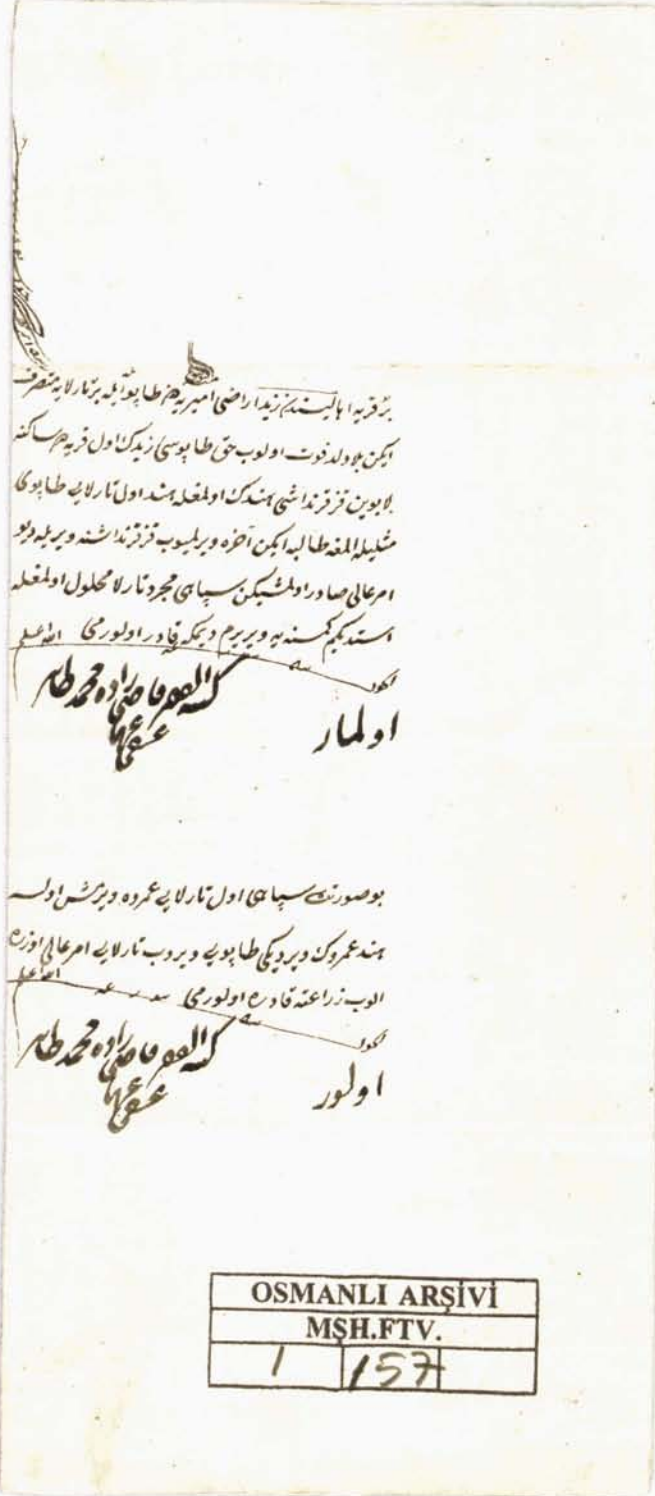 بر قریه اهالیسندن زید اراضئ امیریه‌دن طاپو ایله بر تارلایه متصرف
ایکن بلا ولد فوت اولوب حق طاپوسی زیدك اول قریه‌ده ساکنه
لابوین قز قرنداشی هندك اولمغله هند اول تارلایی طاپوی
مثلیله المغه طالبه ایکن آخره ویرلمیوب قز قرنداشنه ویریله دیو
امر عالی صادر اولمشیکن سپاهی مجرد تارلا محلول اولمغله
استدیکم کمسنه‌یه ویررم دیمکه قادر اولورمی الله اعلم
اولماز
کتبه الفقیر قاضی‌زاده محمد طاهر
عفی عنهما
بو صورتده سپاهی اول تارلایی عمروه ویرمش اولسه
هند عمروك ویردیکی طاپویی ویروب تارلایی امر عالی اوزره
الوب زراعته قادره اولورمی الله اعلم
اولور
کتبه الفقیر قاضی‌زاده محمد طاهر
عفی عنهما
OSMANLI ARŞİVİ
MŞH.FTV.
1 157